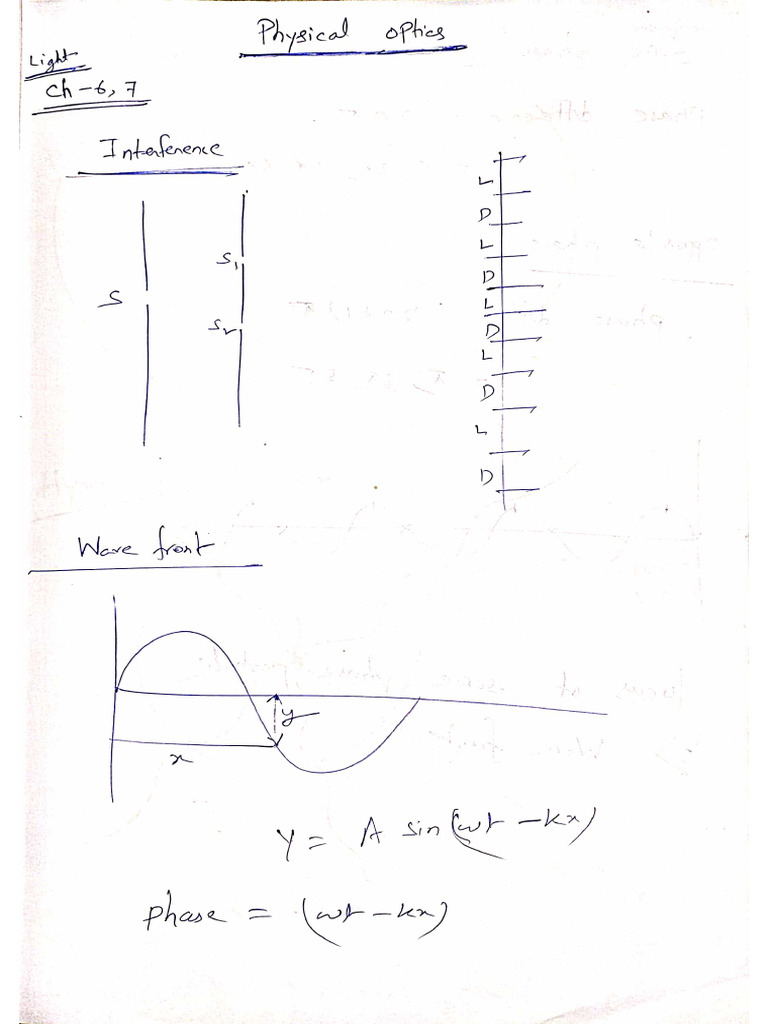 Physical optics
Light
Ch-6, 7
Interference
S
S₁
S₂
L
D
L
D
L
D
L
D
L
D
Wave front
y
x
Y = A sin(ωt - kx)
phase = (ωt - kx)